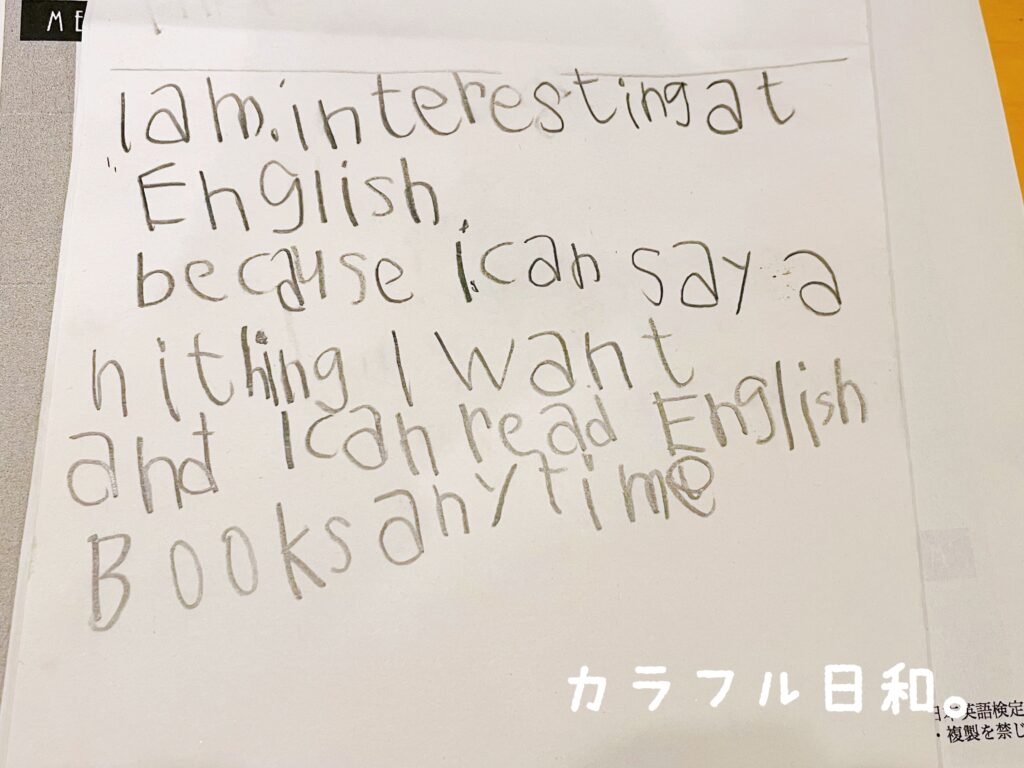 ME
I am. interesting at
English.
because i can say a
nithing I want
and I can read English
Books anytime
カラフル日和。
日本英語検定
・複製を禁じ